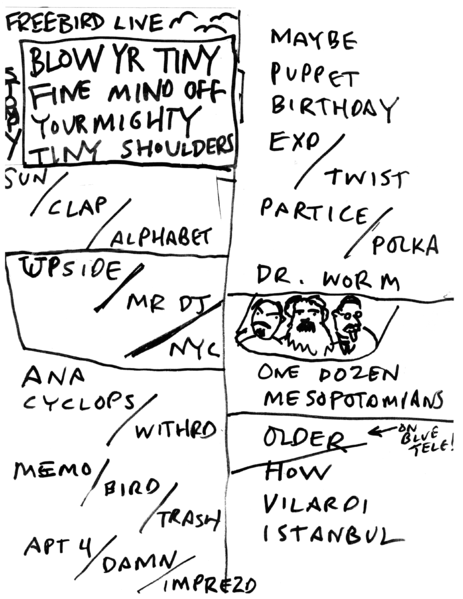 FREEBIRD LIVE
STORY
BLOW YR TINY
FINE MIND OFF
YOUR MIGHTY
TINY SHOULDERS
SUN/
CLAP/
ALPHABET
UPSIDE/
MR DJ
NYC
ANA
CYCLOPS/
WITHRD
MEMO/
BIRD/
TRASH
APT 4/
DAMN/
IMPREZD
MAYBE
PUPPET
BIRTHDAY
EXP/
TWIST
PARTICE/
POLKA
DR. WORM
ONE DOZEN
MESOPOTOMIANS
OLDER ← ON BLUE TELE!
HOW
VILARDI
ISTANBUL